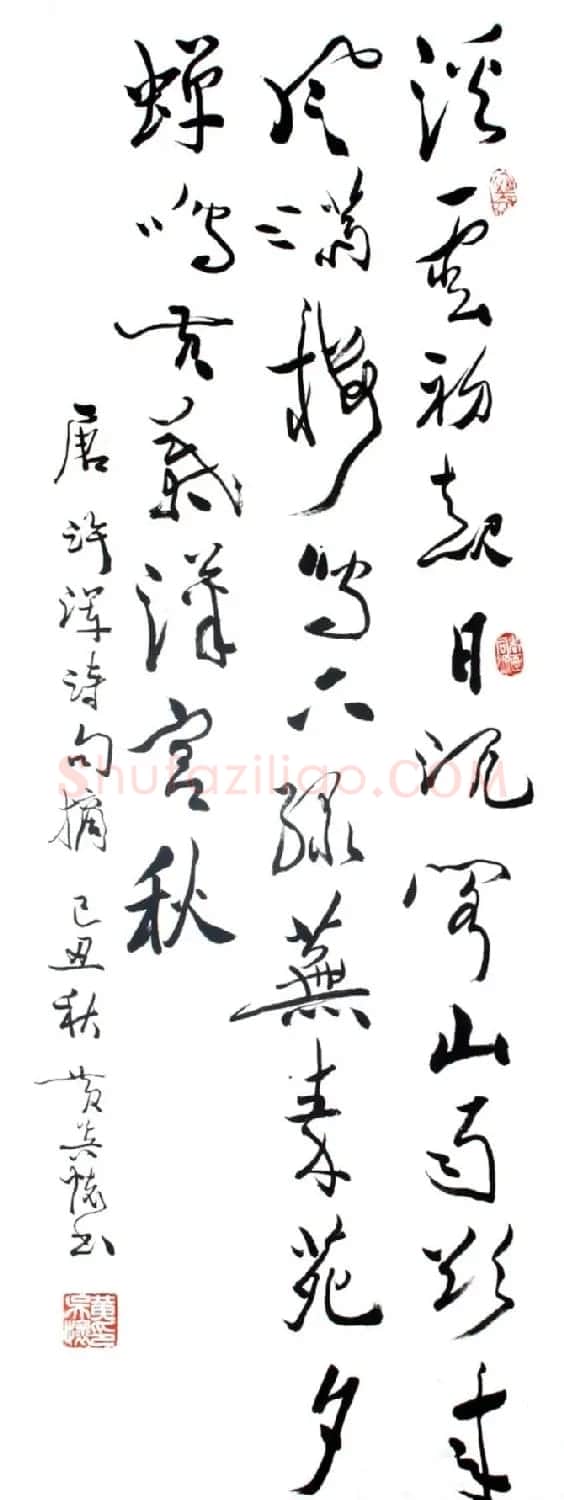 溪雲初起日沉閣山雨欲来
风满楼鸟下绿蕪秦苑夕
蝉鸣黄葉漢宫秋
唐许浑诗句摘 己丑秋 黄 怀书
Shufaziliao.COM